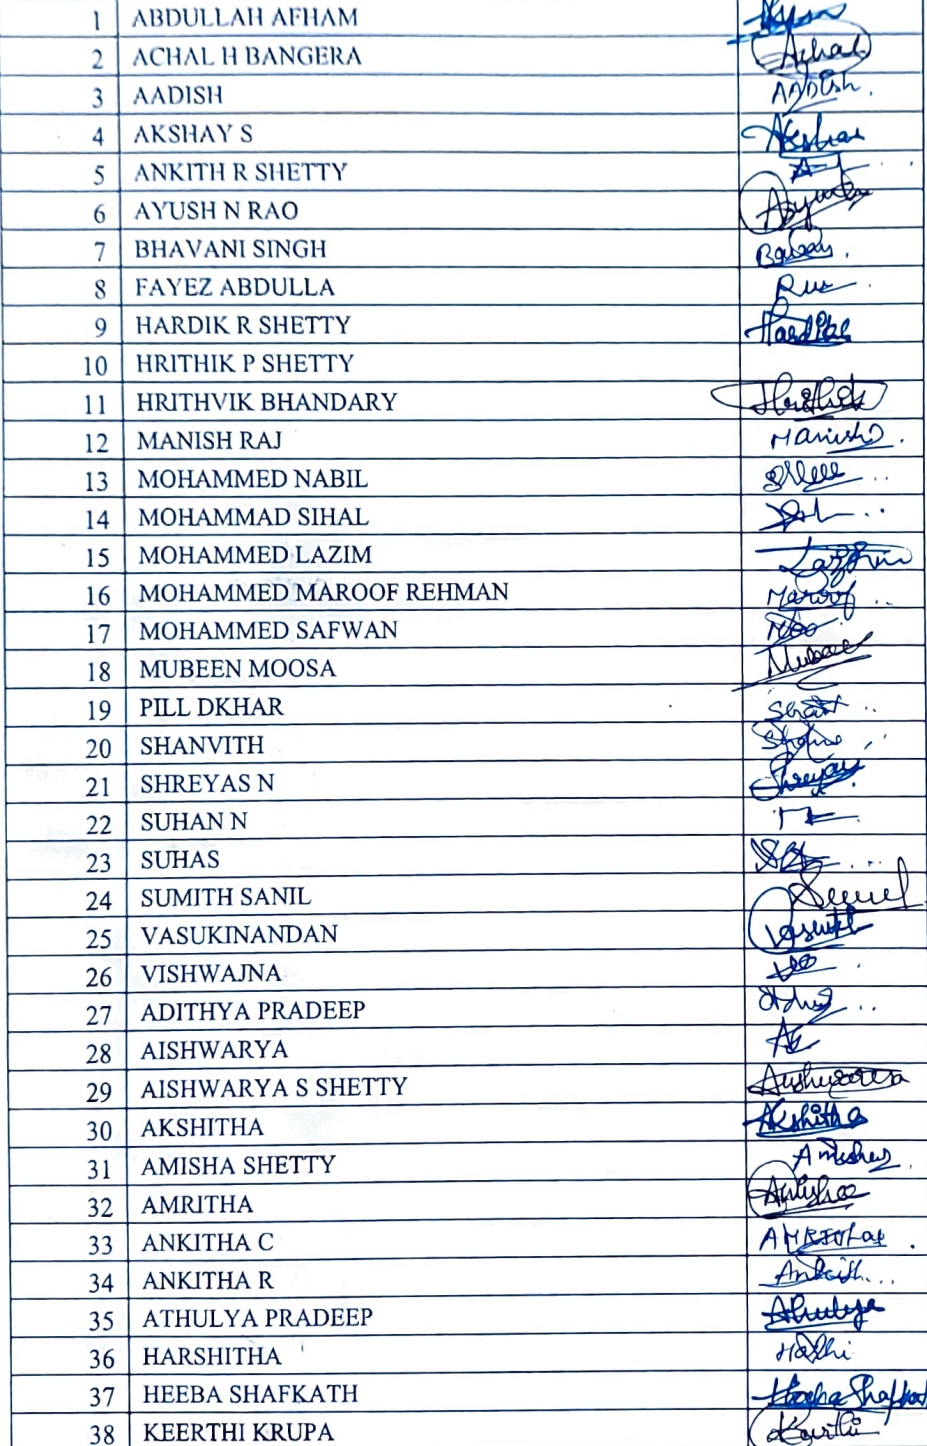 1 ABDULLAH AFHAM
2 ACHAL H BANGERA Achal
3 AADISH AADish.
4 AKSHAY S Akshay
5 ANKITH R SHETTY
6 AYUSH N RAO
7 BHAVANI SINGH
8 FAYEZ ABDULLA
9 HARDIK R SHETTY Hardik
10 HRITHIK P SHETTY
11 HRITHVIK BHANDARY Hrithvik
12 MANISH RAJ Manish
13 MOHAMMED NABIL
14 MOHAMMAD SIHAL
15 MOHAMMED LAZIM
16 MOHAMMED MAROOF REHMAN Maroof
17 MOHAMMED SAFWAN
18 MUBEEN MOOSA
19 PILL DKHAR
20 SHANVITH
21 SHREYAS N Shreyas
22 SUHAN N
23 SUHAS
24 SUMITH SANIL
25 VASUKINANDAN
26 VISHWAJNA
27 ADITHYA PRADEEP
28 AISHWARYA
29 AISHWARYA S SHETTY Aishwarya
30 AKSHITHA Akshitha
31 AMISHA SHETTY Amisha
32 AMRITHA
33 ANKITHA C
34 ANKITHA R
35 ATHULYA PRADEEP Athulya
36 HARSHITHA
37 HEEBA SHAFKATH Heeba Shafkat
38 KEERTHI KRUPA Keerthi